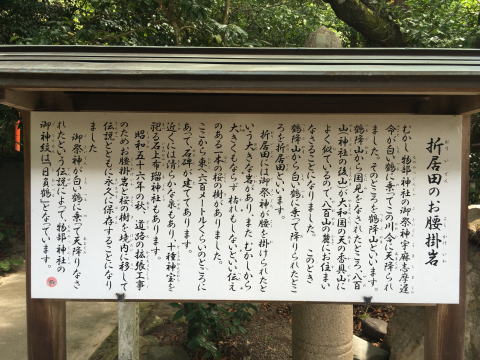 折居田のお腰掛岩
むかし、物部神社の御祭神宇麻志摩遅
命が白い鶴に乗ってこの川合に天降られ
ました。そのところを鶴降山といいます。
鶴降山から国見をなされたところ、八百
山(神社の後山)が大和国の天の香具山に
よく似ているので、八百山の麓にお住まい
なさることになりました。このとき
鶴降山から白い鶴に乗って降りられたとこ
ろを折居田といいます。
折居田には御祭神が腰を掛けられたと
いう大きな岩があり、また、むかしから
大きくもならず枯れもしないといい伝え
のある一本の桜の樹がありました。
ここから、東へ六百メートルくらいのところに
あって、石碑が建ててあります。
近くには清らかな泉もあり、十種神宝を
祀る石上布瑠神社もあります。
昭和五十六年の秋、道路の拡張工事
のためお腰掛岩と桜の樹を境内に移して
伝説とともに永久に保存することになり
ました
御祭神が白い鶴に乗って天降りなさ
れたという伝説によって、物部神社の
御神紋は「日負鶴」となっています。